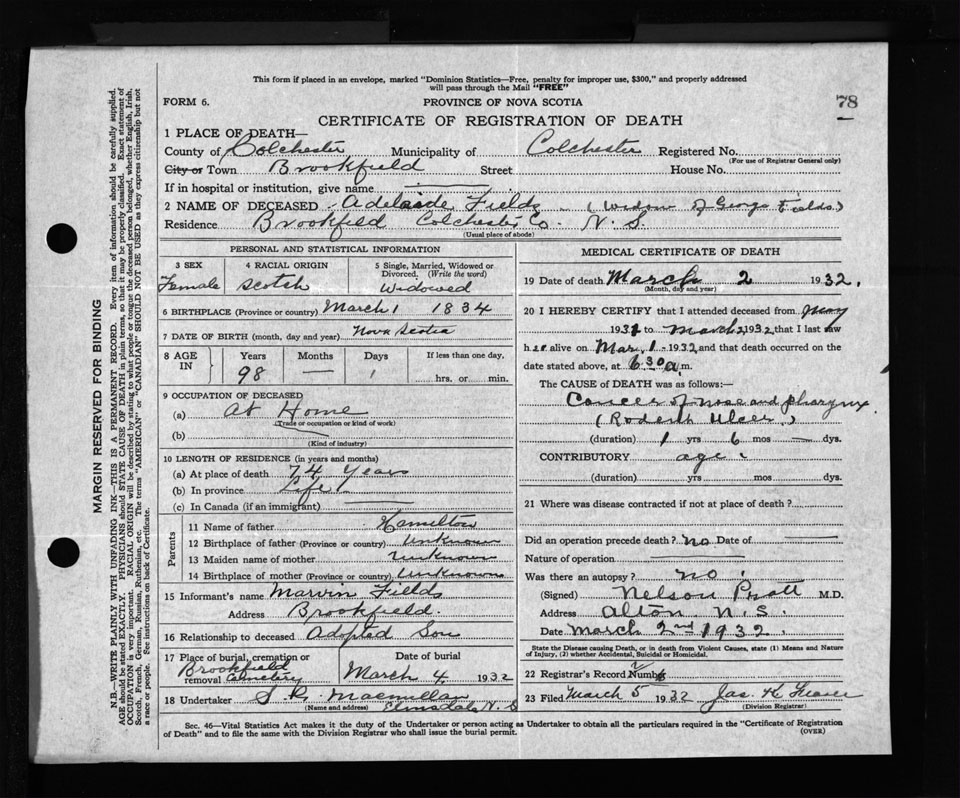 This form if placed in an envelope, marked "Dominion Statistics—Free, penalty for improper use, $300," and properly addressed
will pass through the Mail "FREE"
FORM 6.
PROVINCE OF NOVA SCOTIA
78
CERTIFICATE OF REGISTRATION OF DEATH
1 PLACE OF DEATH—
County of Colchester Municipality of Colchester Registered No.
(For use of Registrar General only)
City or Town Brookfield Street House No.
If in hospital or institution, give name
2 NAME OF DECEASED Adelaide Fields (Widow of George Fields)
Residence Brookfield Colchester Co. N. S.
(Usual place of abode)
PERSONAL AND STATISTICAL INFORMATION
3 SEX
Female
4 RACIAL ORIGIN
Scotch
5 Single, Married, Widowed or
Divorced. (Write the word)
Widowed
6 BIRTHPLACE (Province or country) March 1 1834
7 DATE OF BIRTH (month, day and year) Nova Scotia
8 AGE IN
Years Months Days If less than one day,
98 — 1 hrs. or min.
9 OCCUPATION OF DECEASED
(a) At Home
(Trade or occupation or kind of work)
(b)
(Kind of industry)
10 LENGTH OF RESIDENCE (in years and months)
(a) At place of death 74 Years
(b) In province Life
(c) In Canada (if an immigrant)
Parents
11 Name of father Hamilton
12 Birthplace of father (Province or country) Unknown
13 Maiden name of mother Unknown
14 Birthplace of mother (Province or country) Unknown
15 Informant's name Marvin Fields
Address Brookfield.
16 Relationship to deceased Adopted Son
17 Place of burial, cremation or
removal Brookfield Cemetery
Date of burial
March 4, 1932
18 Undertaker S. R. Macmillan
(Name and address) Elmsdale N. S
MEDICAL CERTIFICATE OF DEATH
19 Date of death March 2 1932.
(Month, day and year)
20 I HEREBY CERTIFY that I attended deceased from May
1931 to March 2 1932 that I last saw
her alive on Mar. 1 - 1932 and that death occurred on the
date stated above, at 6 30 a. m.
The CAUSE of DEATH was as follows:—
Cancer of nose and pharynx
(Rodent Ulcer.)
(duration) 1 yrs 6 mos — dys.
CONTRIBUTORY age.
(duration) yrs mos dys.
21 Where was disease contracted if not at place of death?
Did an operation precede death? no Date of
Nature of operation
Was there an autopsy? no.
(Signed) Nelson Pratt M.D.
Address Alton N. S.
Date March 2nd 1932.
State the Disease causing Death, or in death from Violent Causes, state (1) Means and Nature
of Injury, (2) whether Accidental, Suicidal or Homicidal.
22 Registrar's Record Number
23 Filed March 5 1932 Jas. H.
(Division Registrar)
Sec. 46—Vital Statistics Act makes it the duty of the Undertaker or person acting as Undertaker to obtain all the particulars required in the "Certificate of Registration
of Death" and to file the same with the Division Registrar who shall issue the burial permit.
(OVER)
MARGIN RESERVED FOR BINDING
N.B.—WRITE PLAINLY WITH UNFADING INK—THIS IS A PERMANENT RECORD. Every item of information should be carefully supplied.
AGE should be stated EXACTLY. PHYSICIANS should STATE CAUSE OF DEATH in plain terms, so that it may be properly classified. Exact statement of
OCCUPATION is very important. RACIAL ORIGIN will be described by stating to what people or tongue the deceased person belonged, whether English, Irish,
Scotch, French, German, Russian, Ruthenian, etc. The terms "AMERICAN" or "CANADIAN" SHOULD NOT BE USED as they express citizenship but not
a race or people. See instructions on back of Certificate.